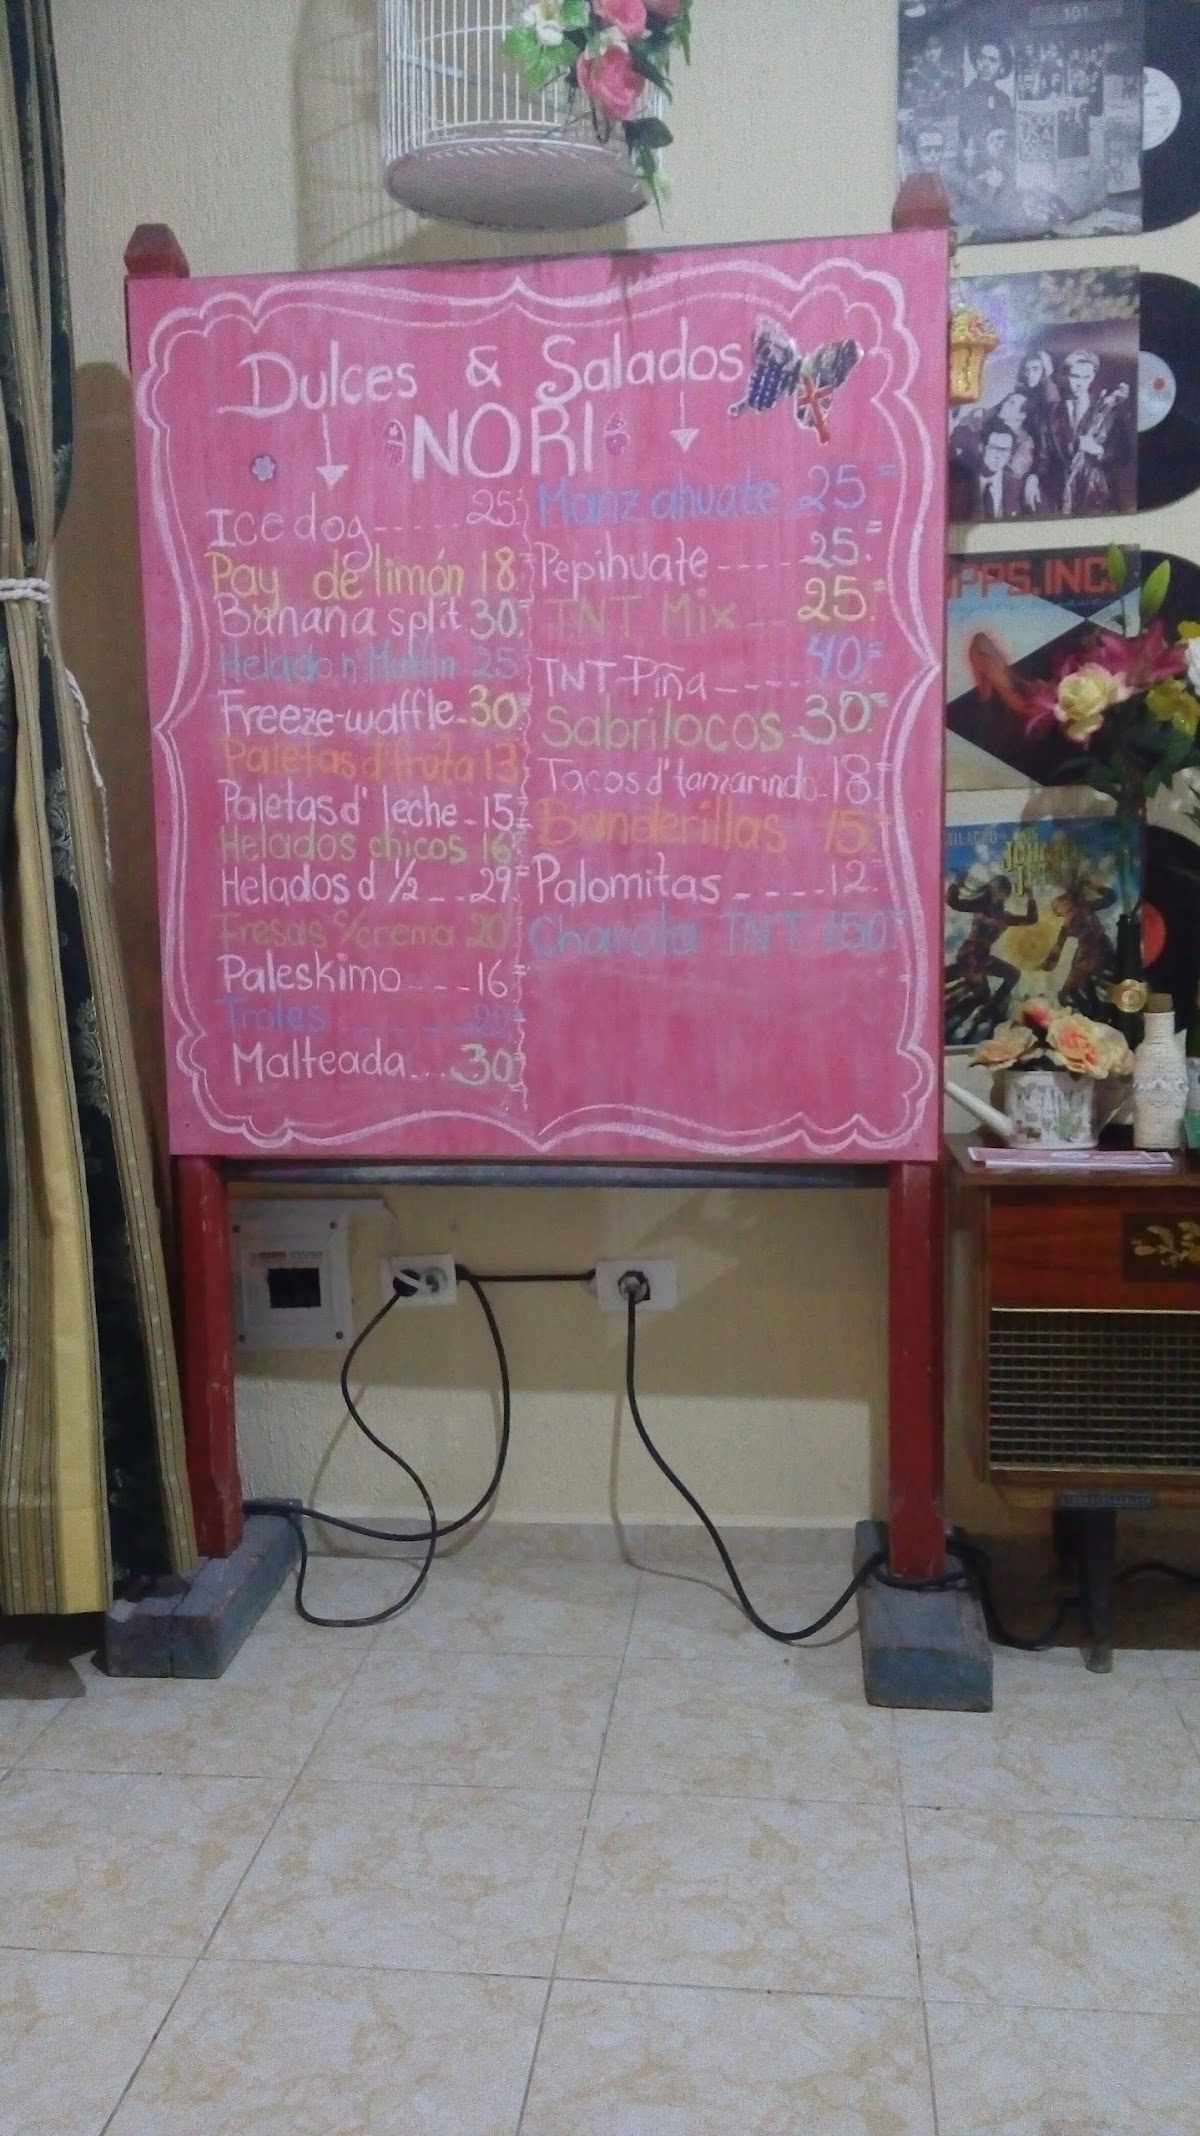 Dulces & Salados
NORI
Ice dog----- 25.=
Pay de limón 18.=
Banana split 30.=
Helado n' Muffin 25.=
Freeze-waffle-30.=
Paletas d' fruta 13
Paletas d' leche-15.=
Helados chicos 16.=
Helados d ½ -- 29.=
Fresas c/crema 20.=
Paleskimo---16.=
Troles ------20.=
Malteada....30.=
Manzahuate 25.=
Pepihuate ----25.=
TNT Mix--25.=
TNT-Piña----40.=
Sabrilocos-30.=
Tacos d' tamarindo-18.=
Banderillas 15.=
Palomitas ----12.=
Charola TNT 150.=
101
PPS.INC.